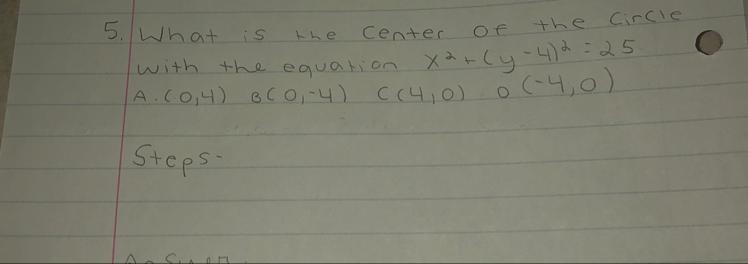 5. What is the center of the circle
with the equation x²+(y-4)²=25
A.(0,4) B(0,-4) C(4,0) D(-4,0)
Steps-
Answer